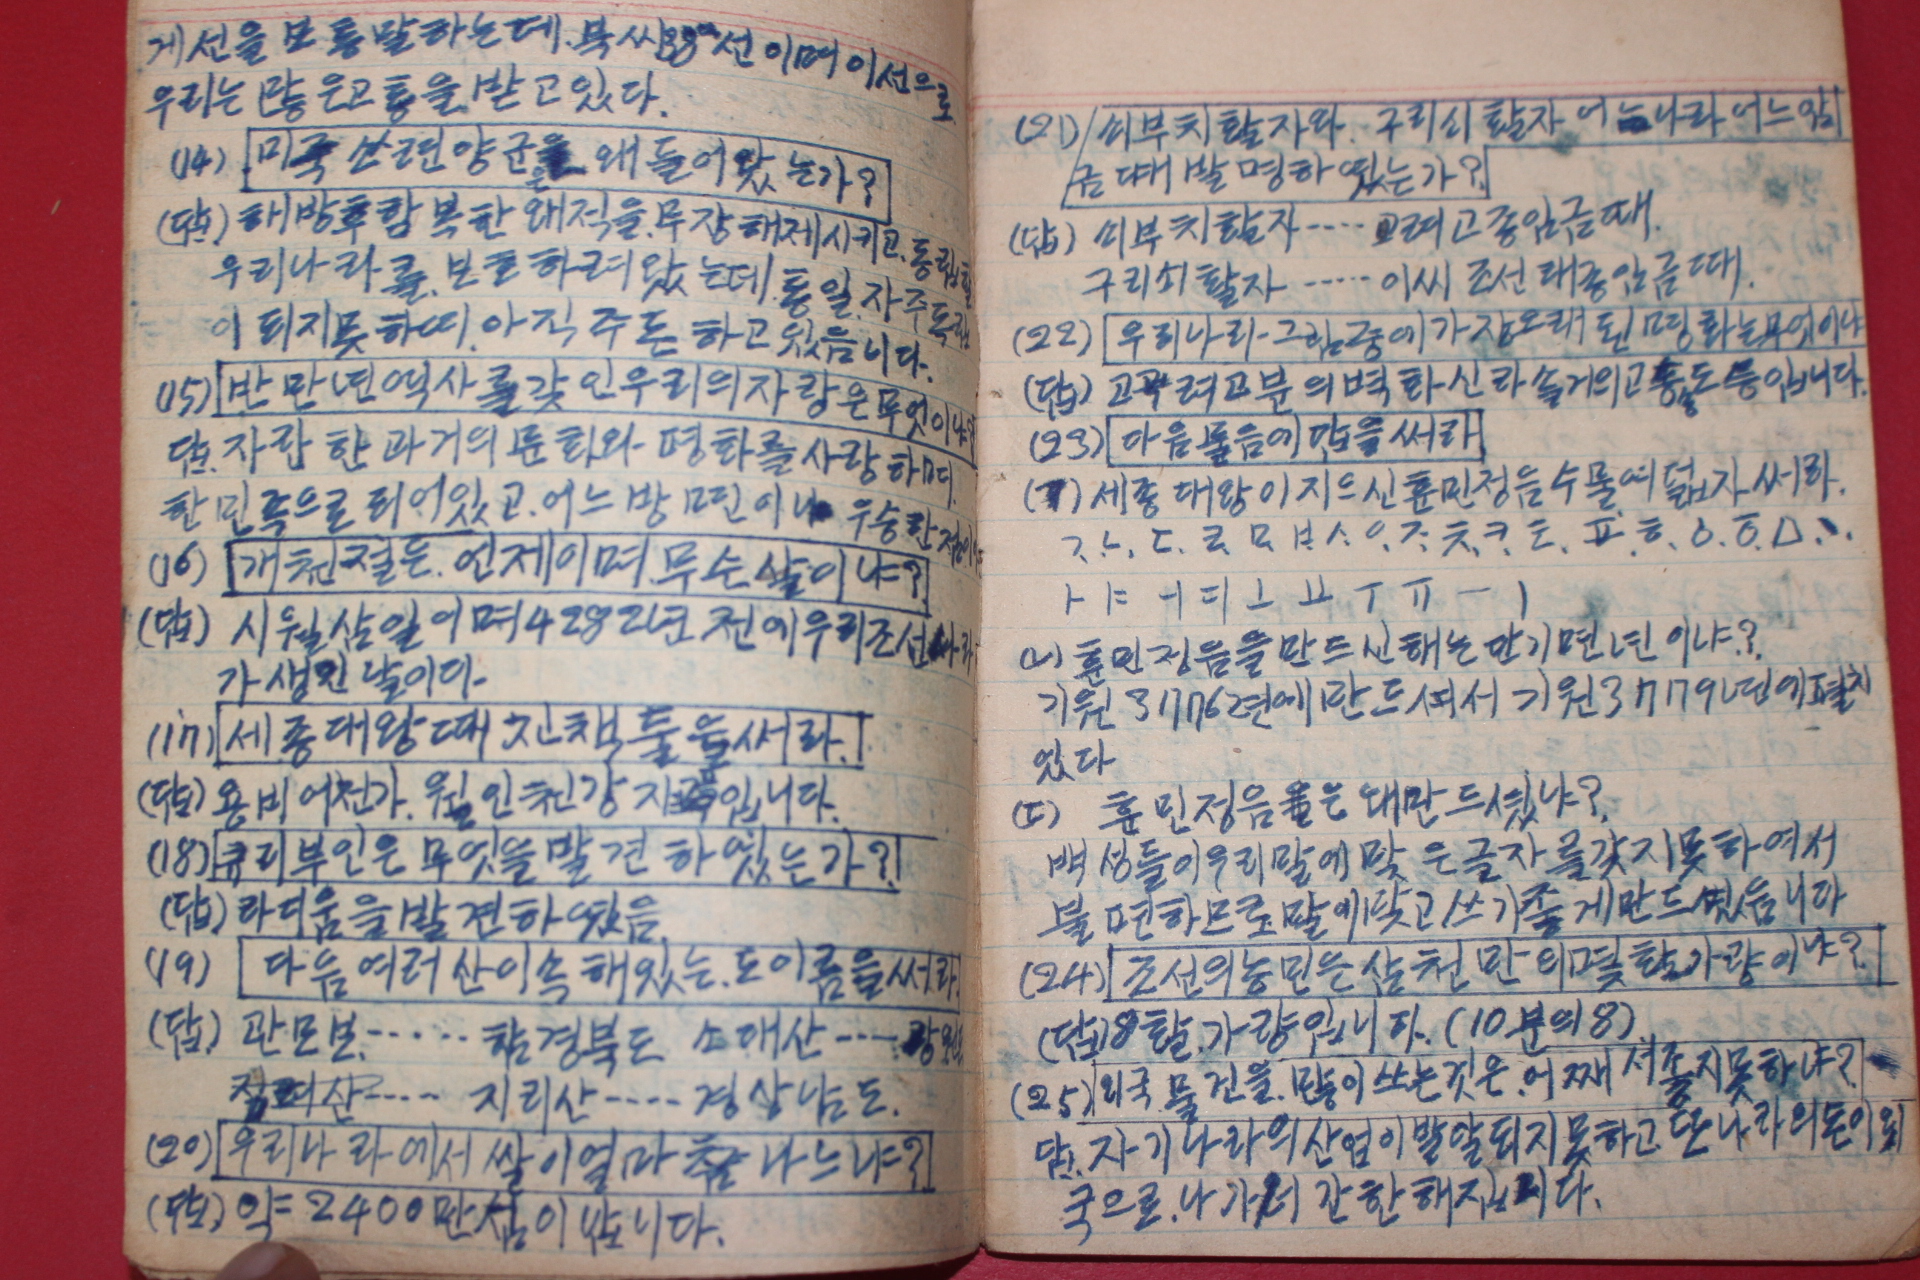 게선을 보통말하는데.북씨38°선이며이선으로
우리는 많은고통을 받고있다.
(14) 미국 쏘련양군을 왜들어왔는가?
(답.) 해방후함복한왜적을.무장해제시키고.
우리나라를.보호하려왔는데.통일.자주
이되지못하며.아직주든하고있읍니다.
(15) 반만년역사를갖인우리의자랑은무엇이냐?
답.자란한과거의문화와평화를사랑하며.
한민족으로되어있고.어느방면이나우승한점이
(16) 개천절은.언제이며.무슨날이냐?
(답.) 시월삼일이며4282년전에우리조선나라
가생긴날이다.
(17) 세종대왕때진책들을써라.
(답.) 용비어천가.월인천강지곡입니다.
(18) 큐리부인은무엇을발견하였는가?
(답.) 라디움을발견하였음
(19) 다음여러산이속해있는.도이름을써라.
(답.) 관모보......함경북도 소대산....강원도
지리산....경상남도.
(20) 우리나라에서쌀이얼마나느냐?
(답.) 약=2400만섬이남니다.
(21) 쇠부치활자와.구리쇠활자어느나라어느임
금때발명하였는가?
(답.) 쇠부치활자....고려고종임금때.
구리쇠활자.....이씨조선태종임금때.
(22) 우리나라-그림중에가장오래된명화는무엇이냐
(답.) 고구려고분의벽화신라솔거의고송도등입니다.
(23) 다음물음에맞을써라
(ㄱ) 세종대왕이지으신훈민정음수물여덟자써라.
ㄱ.ㄴ.ㄷ.ㄹ.ㅁ.ㅂ.ㅅ.ㅇ.ㅈ.ㅊ.ㅋ.ㅌ.ㅍ.ㅎ.ㆁ.ㆆ.ㅿ.ㆍ.
ㅏ ㅑ ㅓ ㅕ ㅗ ㅛ ㅜ ㅠ ㅡ ㅣ
(ㄴ) 훈민정음을만드신해는단기몇년이냐?
기원3776년에만드셔서기원3779년에펼치
었다
(ㄷ) 훈민정음을은왜만드셨냐?
백성들이우리말에맞은글자를갖지못하여서
불편하므로말에맞고쓰기좋게만드셨음니다
(24) 조선의농민은삼천만의몇할가량이냐?
(답) 8할.가량입니다.(10분의8)
(25) 외국물건을.많이쓰는것은.어째서좋지못하냐?
답.자기나라의산업이발달되지못하고단나라의돈이외
국으로.나가너간한해집니다.